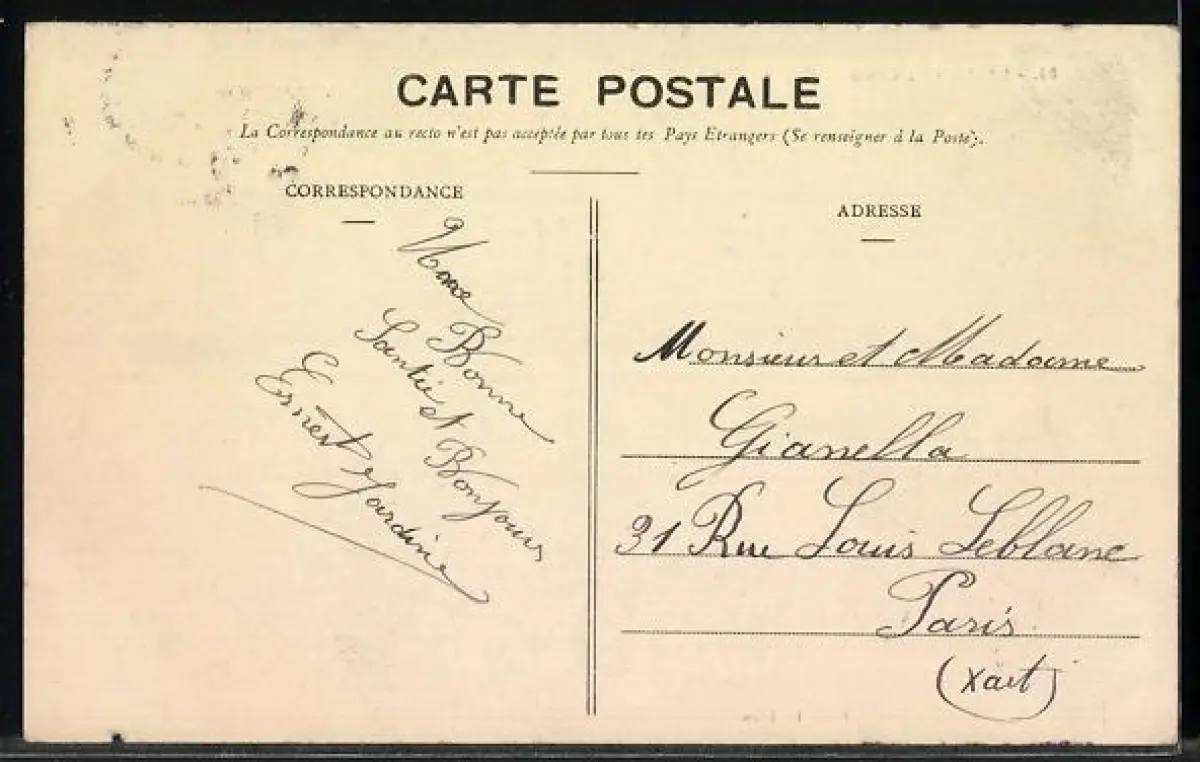 CARTE POSTALE
La Correspondance au recto n'est pas acceptée par tous les Pays Etrangers (Se renseigner à la Poste).
CORRESPONDANCE
Bonne
Santée et Bonjours
Ernest Jardine
ADRESSE
Monsieur et Madame
Gianella
31 Rue Louis Leblanc
Paris
(Xart)